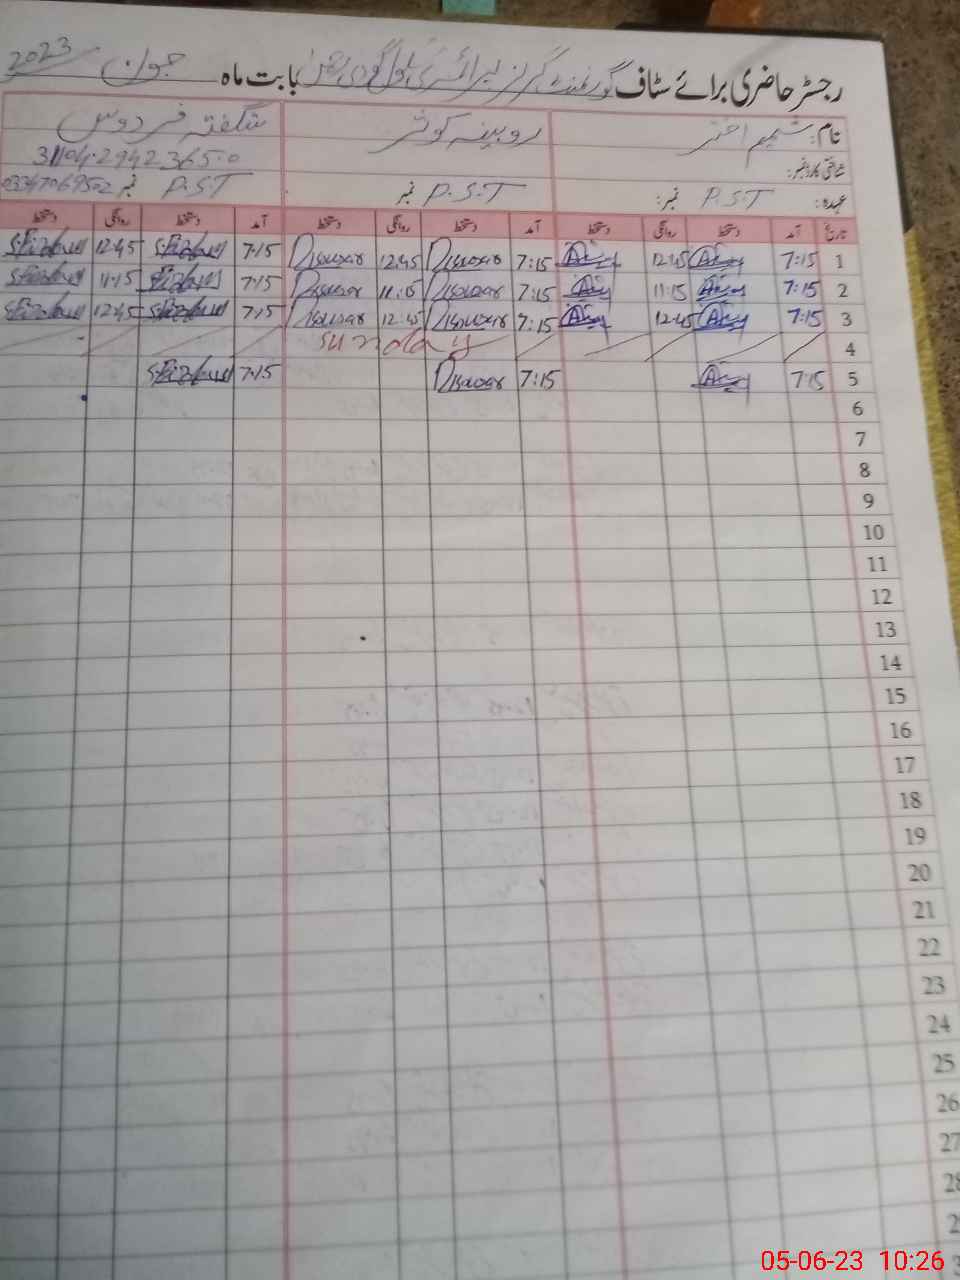 رجسٹر حاضری برائے سٹاف گورنمنٹ گرلز پرائمری سکول بابت ماہ جون 2023
نام: شمیم اختر روبینہ کوثر شگفتہ فردوس
شناختی کارڈ نمبر: 31104-2942365-0
عہدہ: P.S.T نمبر: P.S.T نمبر P.S.T نمبر 03347069502
تاریخ آمد دستخط روانگی دستخط آمد دستخط روانگی دستخط آمد دستخط روانگی دستخط
1 7:15 12:45 7:15 12:45 7:15 12:45
2 7:15 11:15 7:15 11:15 7:15 11:15
3 7:15 12:45 7:15 12:45 7:15 12:45
4 sunday
5 7:15 7:15 7:15
6
7
8
9
10
11
12
13
14
15
16
17
18
19
20
21
22
23
24
25
26
27
28
05-06-23 10:26